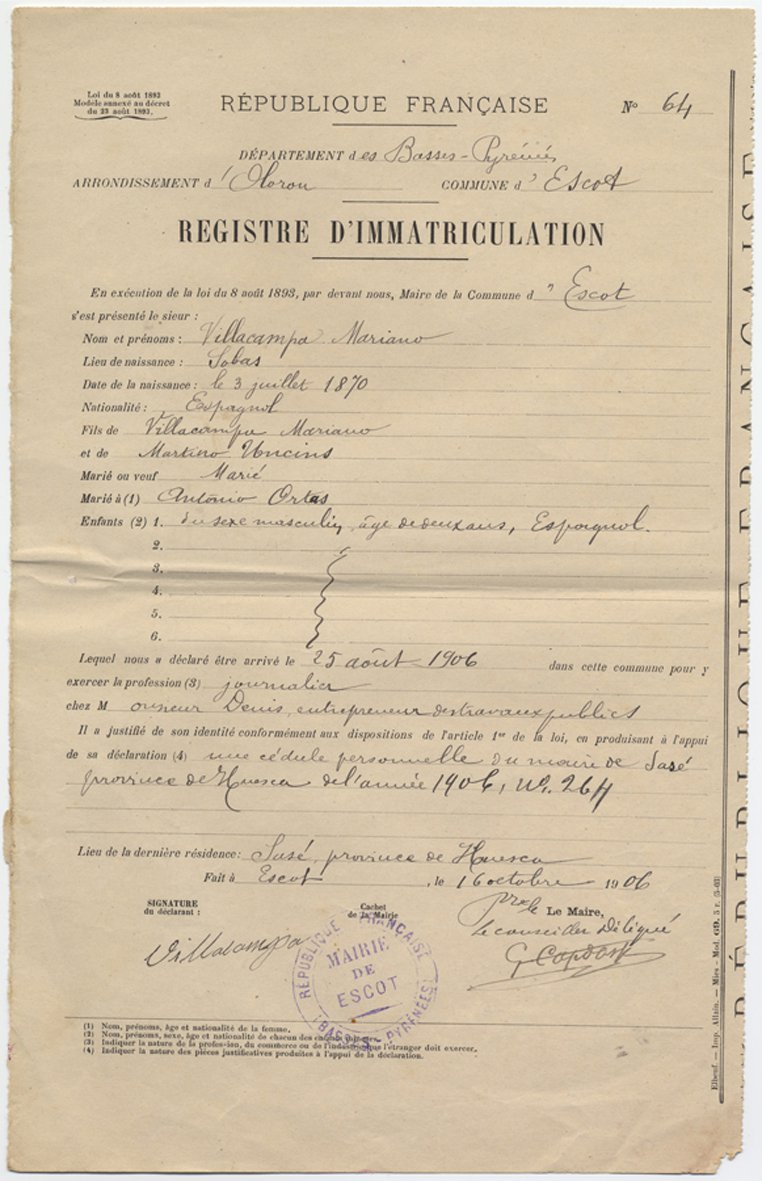 Loi du 8 août 1893
Modèle annexé au décret
du 23 août 1893.
RÉPUBLIQUE FRANÇAISE
N° 64
DÉPARTEMENT des Basses-Pyrénées
ARRONDISSEMENT d'Oloron COMMUNE d'Escot
REGISTRE D'IMMATRICULATION
En exécution de la loi du 8 août 1893, par devant nous, Maire de la Commune d'Escot
s'est présenté le sieur :
Nom et prénoms : Villacampa Mariano
Lieu de naissance : Sobas
Date de la naissance : le 3 juillet 1870
Nationalité : Espagnol
Fils de Villacampa Mariano
et de Martino Uncins
Marié ou veuf Marié
Marié à (1) Antonio Ortas
Enfants (2) 1. du sexe masculin, âge de deux ans, Espagnol.
2.
3.
4.
5.
6.
Lequel nous a déclaré être arrivé le 25 août 1906 dans cette commune pour y
exercer la profession (3) journalier
chez Monsieur Denis, entrepreneur des travaux publics
Il a justifié de son identité conformément aux dispositions de l'article 1er de la loi, en produisant à l'appui
de sa déclaration (4) une cédule personnelle du maire de Sasé
province de Huesca de l'année 1906, N°. 264
Lieu de la dernière résidence : Sasé, province de Huesca
Fait à Escot, le 16 octobre 1906
SIGNATURE
du déclarant :
Cachet
de la Mairie
pr le Le Maire,
Le conseiller Délégué
Villacampa
RÉPUBLIQUE FRANÇAISE
MAIRIE
DE
ESCOT
(BASSES-PYRÉNÉES)
(1) Nom, prénoms, âge et nationalité de la femme.
(2) Nom, prénoms, sexe, âge et nationalité de chacun des enfants
(3) Indiquer la nature de la profession, du commerce ou de l'industrie que l'étranger doit exercer.
(4) Indiquer la nature des pièces justificatives produites à l'appui de la déclaration.
Elbeuf. — Imp. Allain. — Mies - Mod. 69. 5 r. (5-03)
RÉPUBLIQUE FRANÇAISE